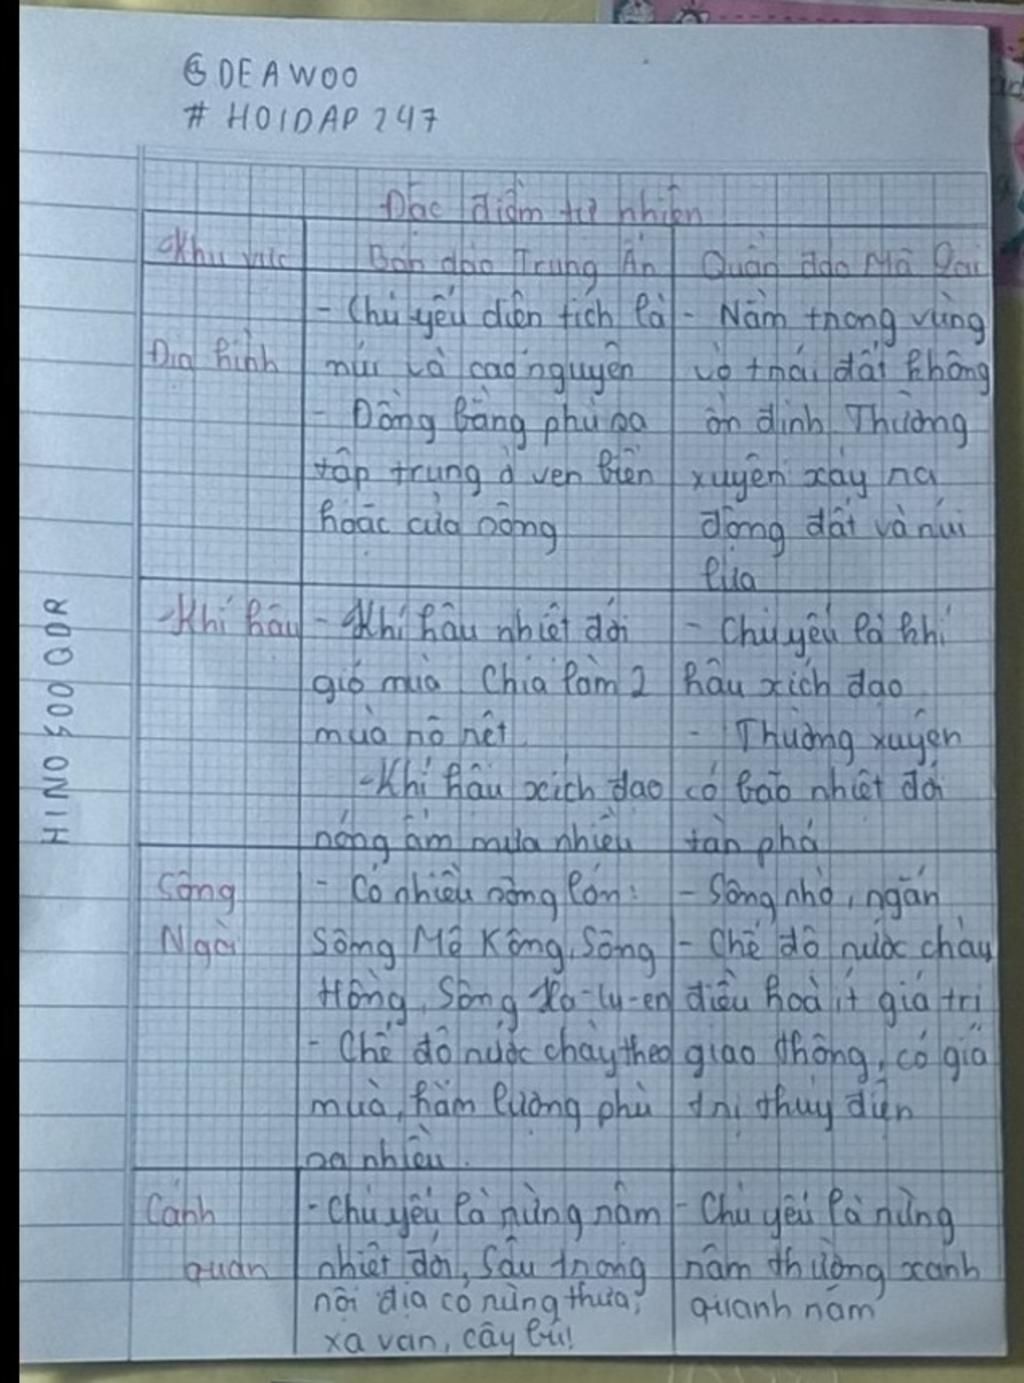 @DEAWOO
# HOIDAP 247
Đặc điểm tự nhiên
Khu vực
Bán đảo Trung Ấn
Quần đảo Mã Lai
Địa hình
- Chủ yếu diện tích là
núi và cao nguyên
- Đồng bằng phù sa
tập trung ở ven biển
hoặc cửa sông
- Nằm trong vùng
vỏ trái đất không
ổn định. Thường
xuyên xảy ra
động đất và núi
lửa
Khí hậu
- Khí hậu nhiệt đới
gió mùa. Chia làm 2
mùa rõ rệt.
- Khí hậu xích đạo
nóng ẩm mưa nhiều
- Chủ yếu là khí
hậu xích đạo
- Thường xuyên
có bão nhiệt đới
tàn phá
Sông
Ngòi
- Có nhiều sông lớn:
Sông Mê Kông, Sông
Hồng, Sông Xa-lu-en
- Chế độ nước chảy theo
mùa, hàm lượng phù
sa nhiều.
- Sông nhỏ, ngắn
- Chế độ nước chảy
điều hoà ít giá trị
giao thông, có giá
trị thủy điện
Cảnh
quan
- Chủ yếu là rừng rậm
nhiệt đới, Sâu trong
nội địa có rừng thưa,
xa van, cây bụi!
- Chủ yếu là rừng
rậm thường xanh
quanh năm
HINO 500 QDR